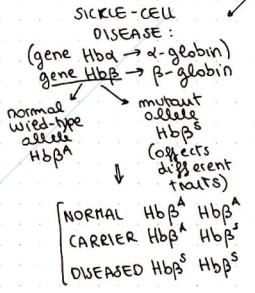 SICKLE-CELL
DISEASE:
(gene Hbα → α-globin)
gene Hbβ → β-globin
normal
wied-type
allele
Hbβᴬ
mutant
allele
Hbβˢ
(affects
different
traits)
NORMAL Hbβᴬ Hbβᴬ
CARRIER Hbβᴬ Hbβˢ
DISEASED Hbβˢ Hbβˢ